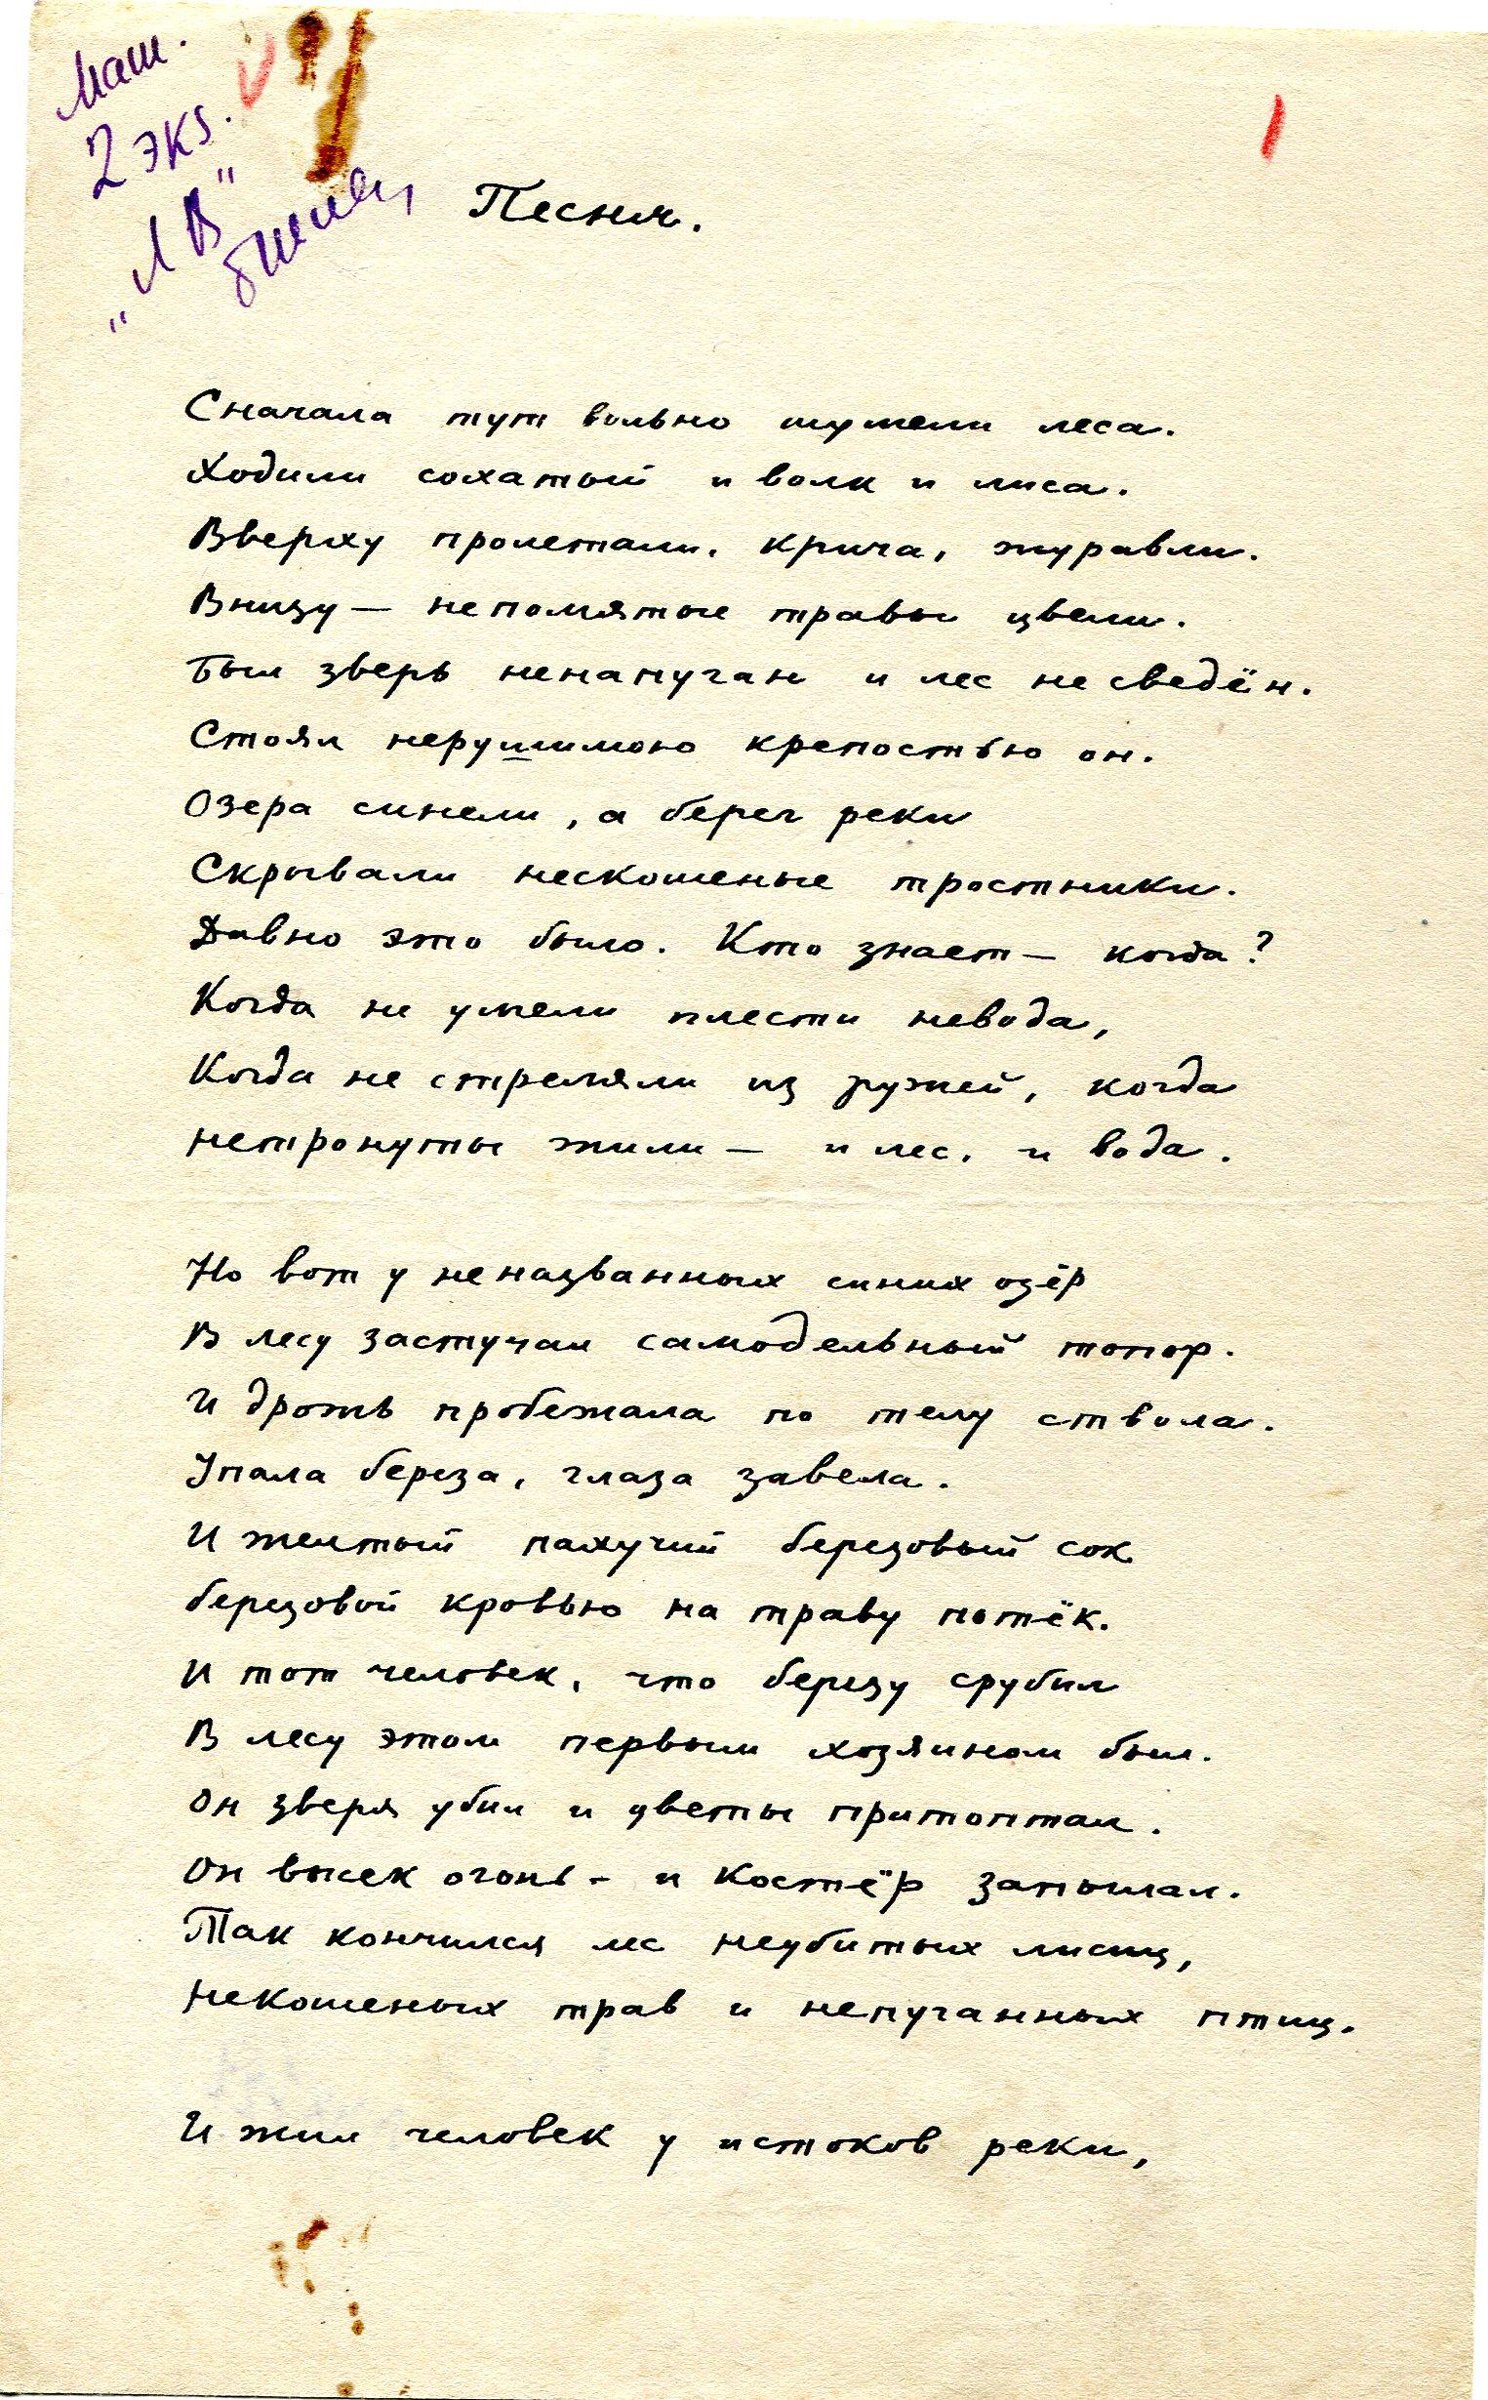 Маш.
2 экз.
"ЛВ"
Песня.
Сначала тут вольно шумели леса.
Ходили сохатый и волк и лиса.
Вверху пролетали, крича, журавли.
Внизу — непомятые травы цвели.
Был зверь ненапуган и лес не сведён.
Стоял нерушимою крепостью он.
Озера синели, а берег реки
Скрывали нескошеные тростники.
Давно это было. Кто знает — когда?
Когда не умели плести невода,
Когда не стреляли из ружей, когда
нетронуты жили — и лес, и вода.
Но вот у неназванных синих озёр
В лесу застучал самодельный топор.
И дрожь пробежала по телу ствола.
Упала береза, глаза завела.
И желтый пахучий березовый сок
березовой кровью на траву потёк.
И тот человек, что березу срубил
В лесу этом первым хозяином был.
Он зверя убил и цветы притоптал.
Он высек огонь - и костёр запылал.
Так кончился лес неубитых лисиц,
Некошеных трав и непуганных птиц.
И жил человек у истоков реки,